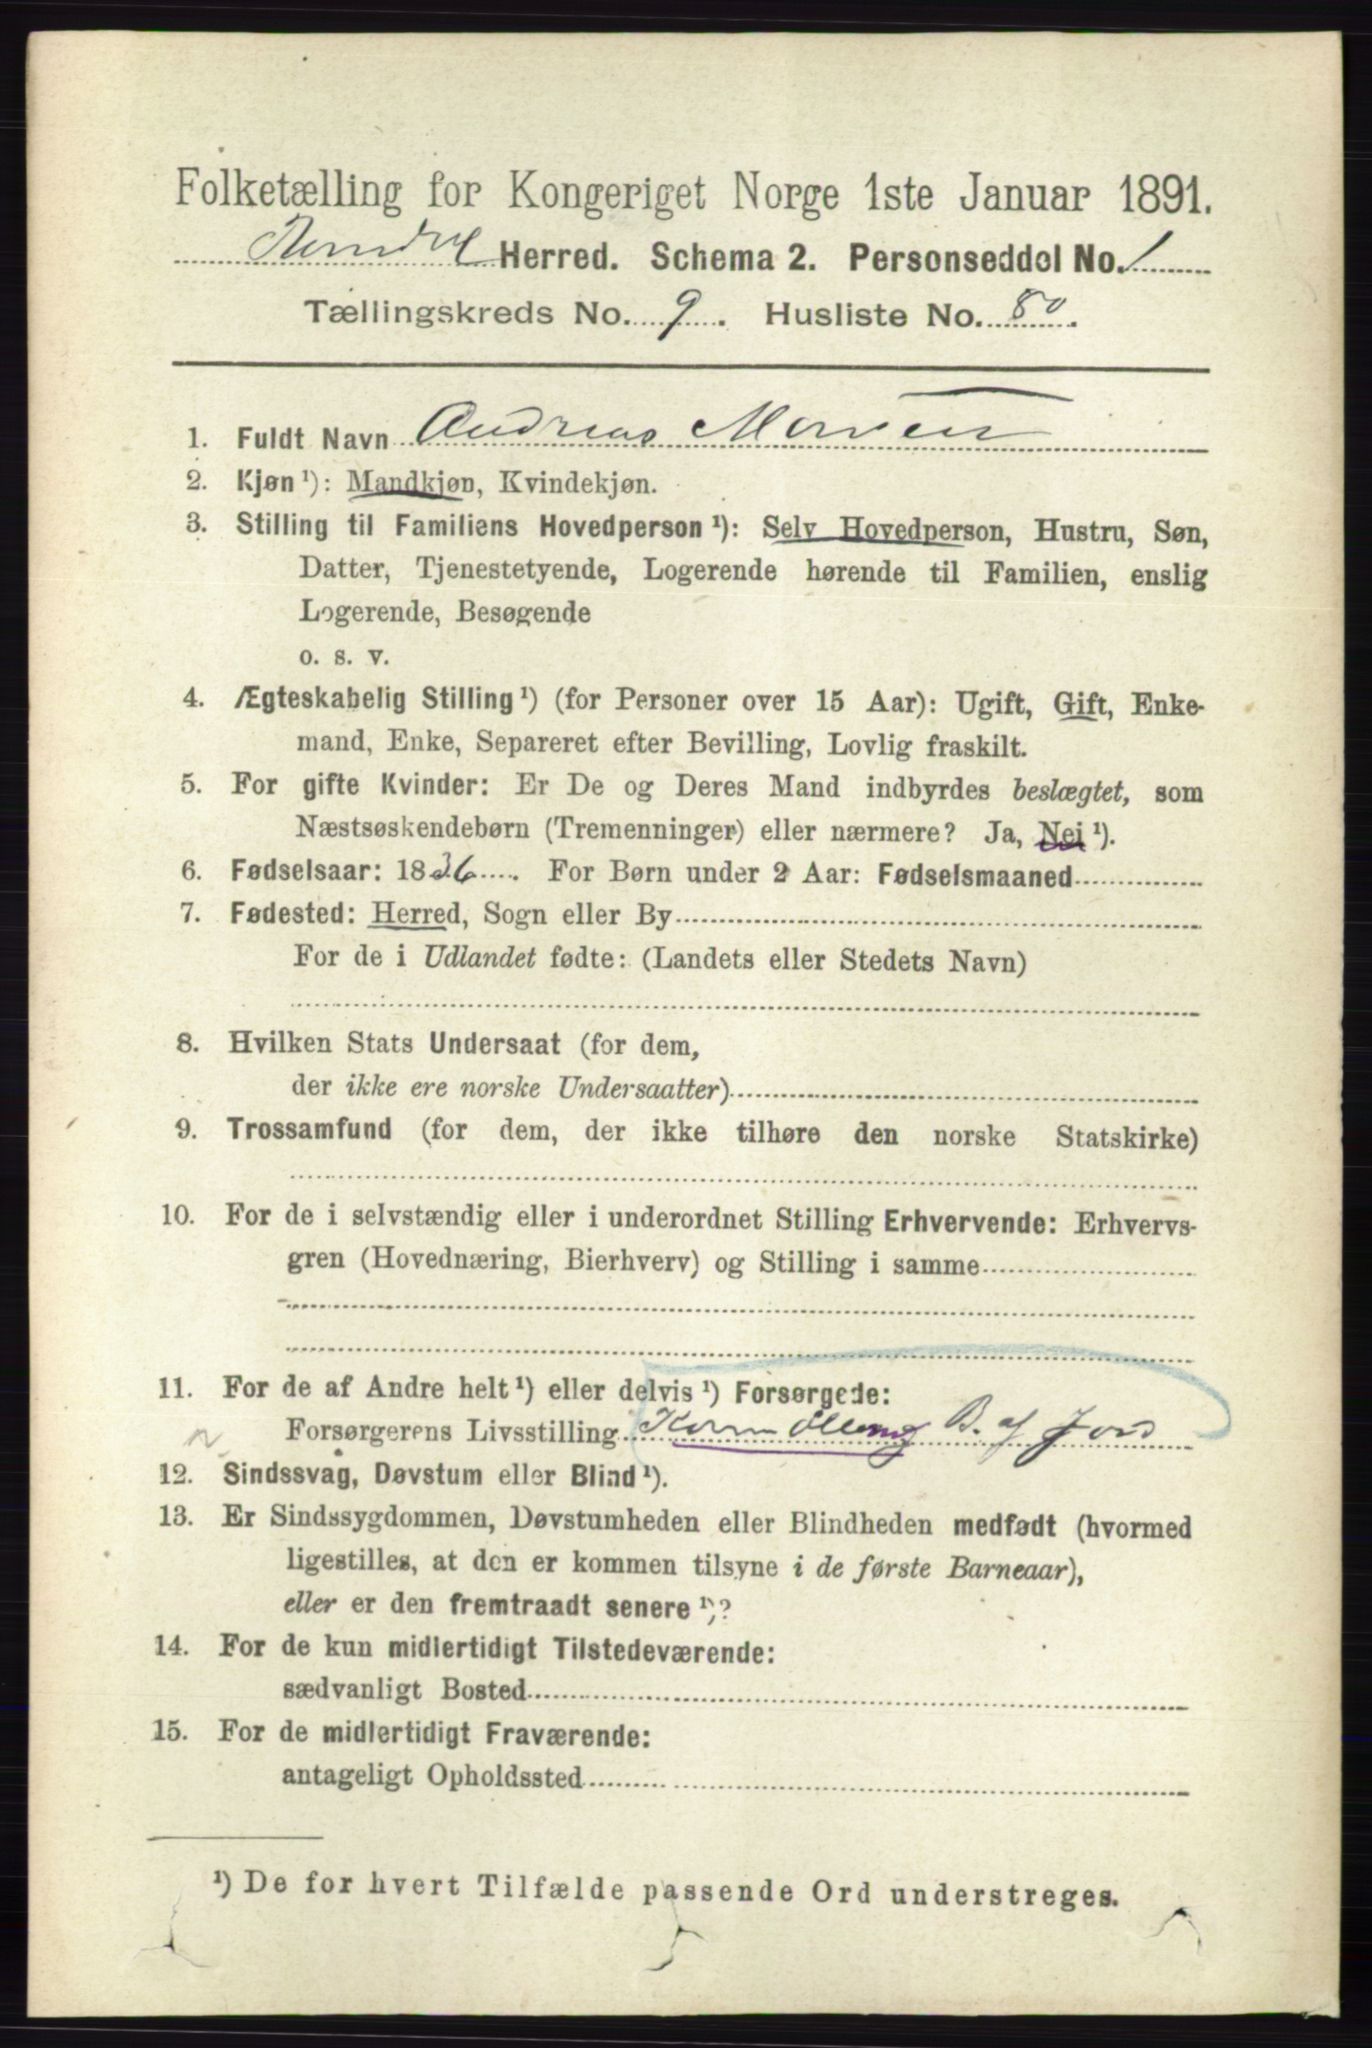 Folketælling for Kongeriget Norge 1ste Januar 1891.
Herred. Schema 2. Personseddel No. 1
Tællingskreds No. 9. Husliste No. 80.
1. Fuldt Navn Andreas
2. Kjøn ¹): Mandkjøn, Kvindekjøn.
3. Stilling til Familiens Hovedperson ¹): Selv Hovedperson, Hustru, Søn,
Datter, Tjenestetyende, Logerende hørende til Familien, enslig
Logerende, Besøgende
o. s. v.
4. Ægteskabelig Stilling ¹) (for Personer over 15 Aar): Ugift, Gift, Enke-
mand, Enke, Separeret efter Bevilling, Lovlig fraskilt.
5. For gifte Kvinder: Er De og Deres Mand indbyrdes beslægtet, som
Næstsøskendebørn (Tremenninger) eller nærmere? Ja, Nei ¹).
6. Fødselsaar: 1836. For Børn under 2 Aar: Fødselsmaaned
7. Fødested: Herred, Sogn eller By
For de i Udlandet fødte: (Landets eller Stedets Navn)
8. Hvilken Stats Undersaat (for dem,
der ikke ere norske Undersaatter)
9. Trossamfund (for dem, der ikke tilhøre den norske Statskirke)
10. For de i selvstændig eller i underordnet Stilling Erhvervende: Erhvervs-
gren (Hovednæring, Bierhverv) og Stilling i samme
11. For de af Andre helt ¹) eller delvis ¹) Forsørgede:
Forsørgerens Livsstilling B. af Jord
12. Sindssvag, Døvstum eller Blind ¹).
13. Er Sindssygdommen, Døvstumheden eller Blindheden medfødt (hvormed
ligestilles, at den er kommen tilsyne i de første Barneaar),
eller er den fremtraadt senere ¹)?
14. For de kun midlertidigt Tilstedeværende:
sædvanligt Bosted
15. For de midlertidigt Fraværende:
antageligt Opholdssted
¹) De for hvert Tilfælde passende Ord understreges.